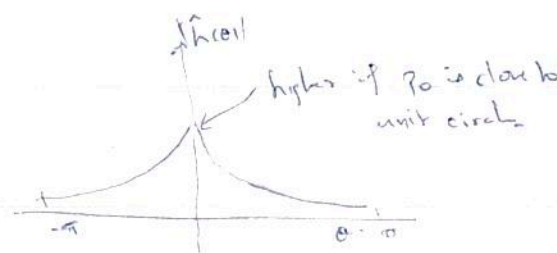 |ĥ(θ)|
higher if p₀ is close to
unit circle
-π
θ = π